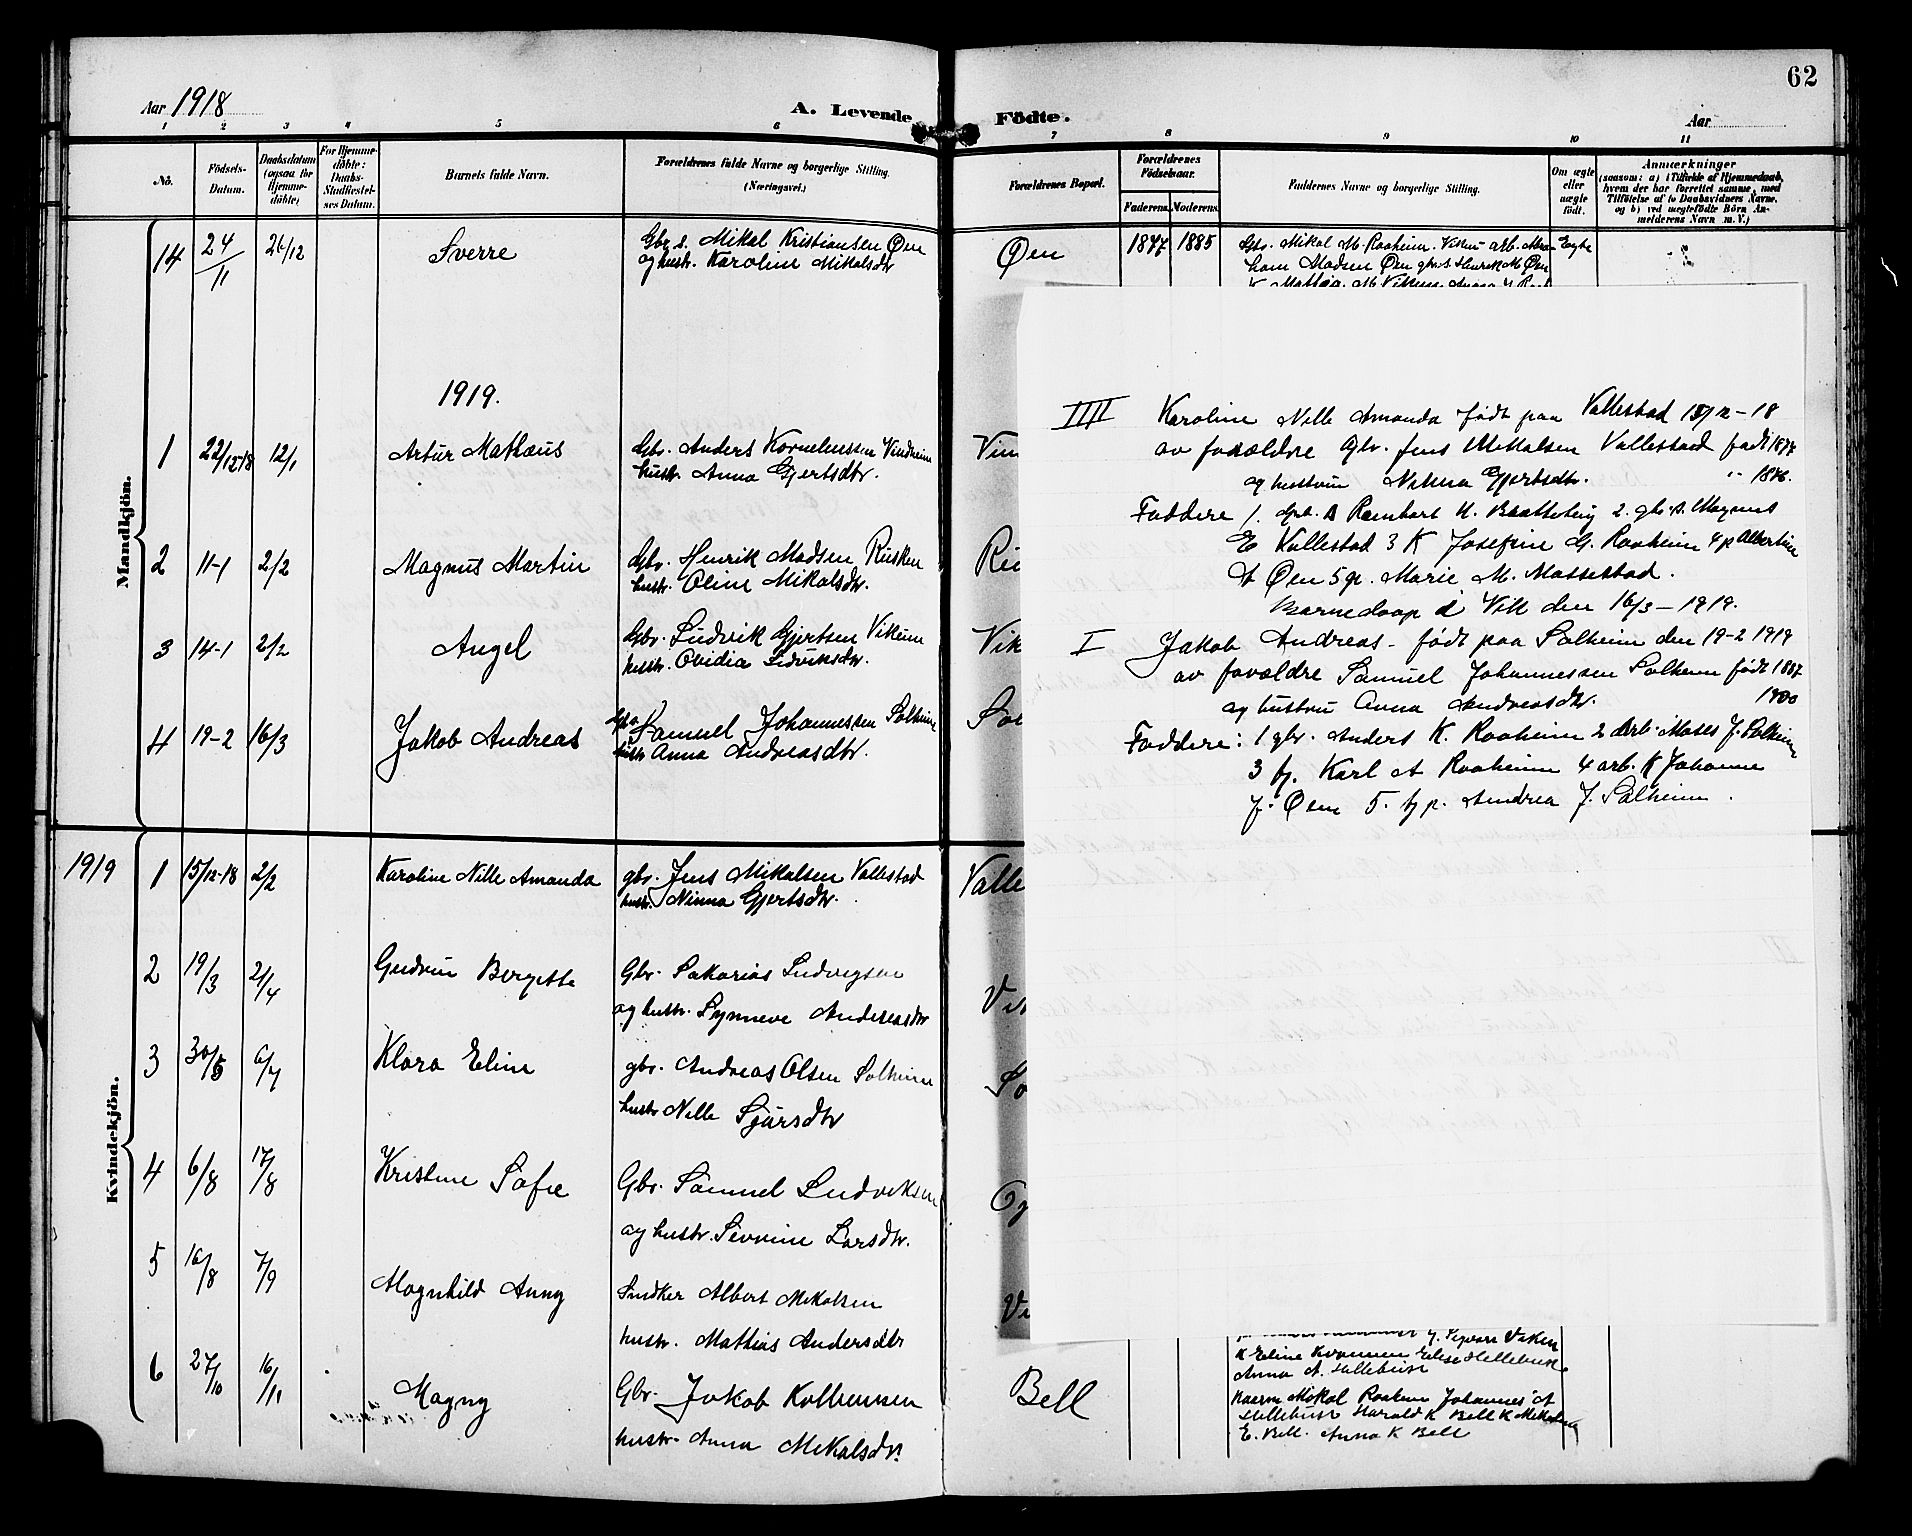 62
Aar 1918
A. Levende Födte.
Aar
1 2 3 4 5 6 7 8 9 10 11
No.
Födsels-Datum.
Daabsdatum (ogsaa for Hjemmedöbte)
For Hjemmedöbte: Daabs-Stadfæstelses Datum.
Barnets fulde Navn.
Forældrenes fulde Navne og borgerlige Stilling. (Næringsvei.)
Forældrenes Bopæl.
Forældrenes Födselsaar.
Faderens. Moderens.
Faddernes Navne og borgerlige Stilling.
Om ægte eller uægte födt.
Anmærkninger
(saasom: a) i Tilfælde af Hjemmedaab, hvem der har forrettet samme, med Tilföielse af to Daabsvidners Navne, og b) ved uægtefödte Börn Anmelderens Navn m. V.)
Mandkjön.
14 24/11 26/12 Sverre Gbr. s. Mikal Kristiansen Øen Øen 1847 1885 Gbr. Mikal M. Raaheim. Ægte
og hustr. Karoline Mikalsdtr
ham Madsen Øen gbr.s. Henrik M. Øen
1919.
1 22/12 18 12/1 Artur Mathæus Gbr. Anders Kornelinssen Vindheim
hustr. Anna Gjertsdtr.
2 11-1 2/2 Magnus Martin Gbr. Henrik Madsen Risken
hustr. Oline Mikalsdtr.
3 14-1 2/2 Angel Gbr. Ludvik Gjertsen Vikum Vik
hustr. Ovidia Ludviksdtr.
4 19-2 16/3 Jakob Andreas Samuel Johannessen Solheim Sol
hustr Anna Andreasdtr.
Kvindekjön.
1919 1 15/12-18 2/2 Karoline Nille Amanda gbr. Jens Mikalsen Vallestad Valle
hustr. Ninna Gjertsdtr.
2 19/3 21/4 Gudrun Bergitte Gbr. Sakarias Ludvigsen
og hustr. Synneve Andreasdtr
3 30/5 6/7 Klara Eline gbr. Andreas Olsen Solheim So
hustr Nille Sjursdtr
4 6/8 17/8 Kristine Sofie Gbr. Samuel Ludviksen
og hustr. Sevrine Larsdtr.
5 16/8 7/9 Magnhild Anny Albert Mikalsen
hustr. Mathias Andersdtr
6 27/10 16/11 Magny Gbr. Jakob Bell
hustr. Anna Mikalsdtr.
IIII Karoline Nille Amanda født paa Vallestad 15/12-18
av forældre Gbr. Jens Mikalsen Vallestad født 1877
og hustrue Ninna Gjertsdtr. " 1876.
Faddere 1. 2. gbr.s. Magnus
E Vallestad 3 K Josefine G. Raaheim 4 p Albertine
A Øen 5 p. Marie M. Massestad.
Barnedaap i Vik den 16/3-1919.
I Jakob Andreas - født paa Solheim den 19-2 1919
av forældre Samuel Johannessen Solheim født 1887
og hustru Anna Andreasdtr. 1900
Faddere: 1 gbr. Anders K. Raaheim 2 arb. Moses J. Solheim
3 fj. Karl A Raaheim 4 arb. K Johanne
J. Øen 5. fj p. Andrea J. Solheim.
K Eline Kvammen Elise Hellebust
Anna A. Hellebust
Mikal Raaheim Johannes A
Hellebust Harald K Bell K Mikalina
E. Bell. Anna K Bell